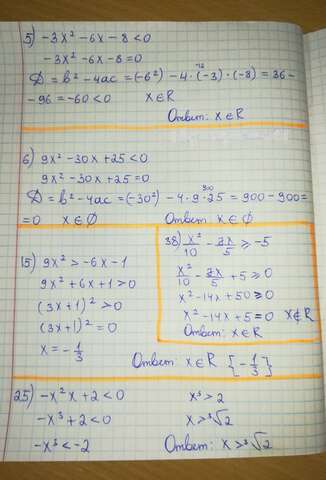 5) -3x² - 6x - 8 < 0
-3x² - 6x - 8 = 0
D = b² - 4ac = (-6²) - 4 · (-3) · (-8) = 36 -
-12
- 96 = -60 < 0 x ∈ R
Ответ: x ∈ R
6) 9x² - 30x + 25 < 0
9x² - 30x + 25 = 0
D = b² - 4ac = (-30²) - 4 · 9 · 25 = 900 - 900 =
900
= 0 x ∈ ∅ Ответ x ∈ ∅
15) 9x² > -6x - 1
9x² + 6x + 1 > 0
(3x + 1)² > 0
(3x + 1)² = 0
x = -1/3
38) x²/10 - 7x/5 ≥ -5
x²/10 - 7x/5 + 5 ≥ 0
x² - 14x + 50 ≥ 0
x² - 14x + 5 = 0 x ∉ R
Ответ: x ∈ R
Ответ x ∈ R [-1/3}
25) -x²x + 2 < 0
-x³ + 2 < 0
-x³ < -2
x³ > 2
x > ³√2
Ответ: x > ³√2